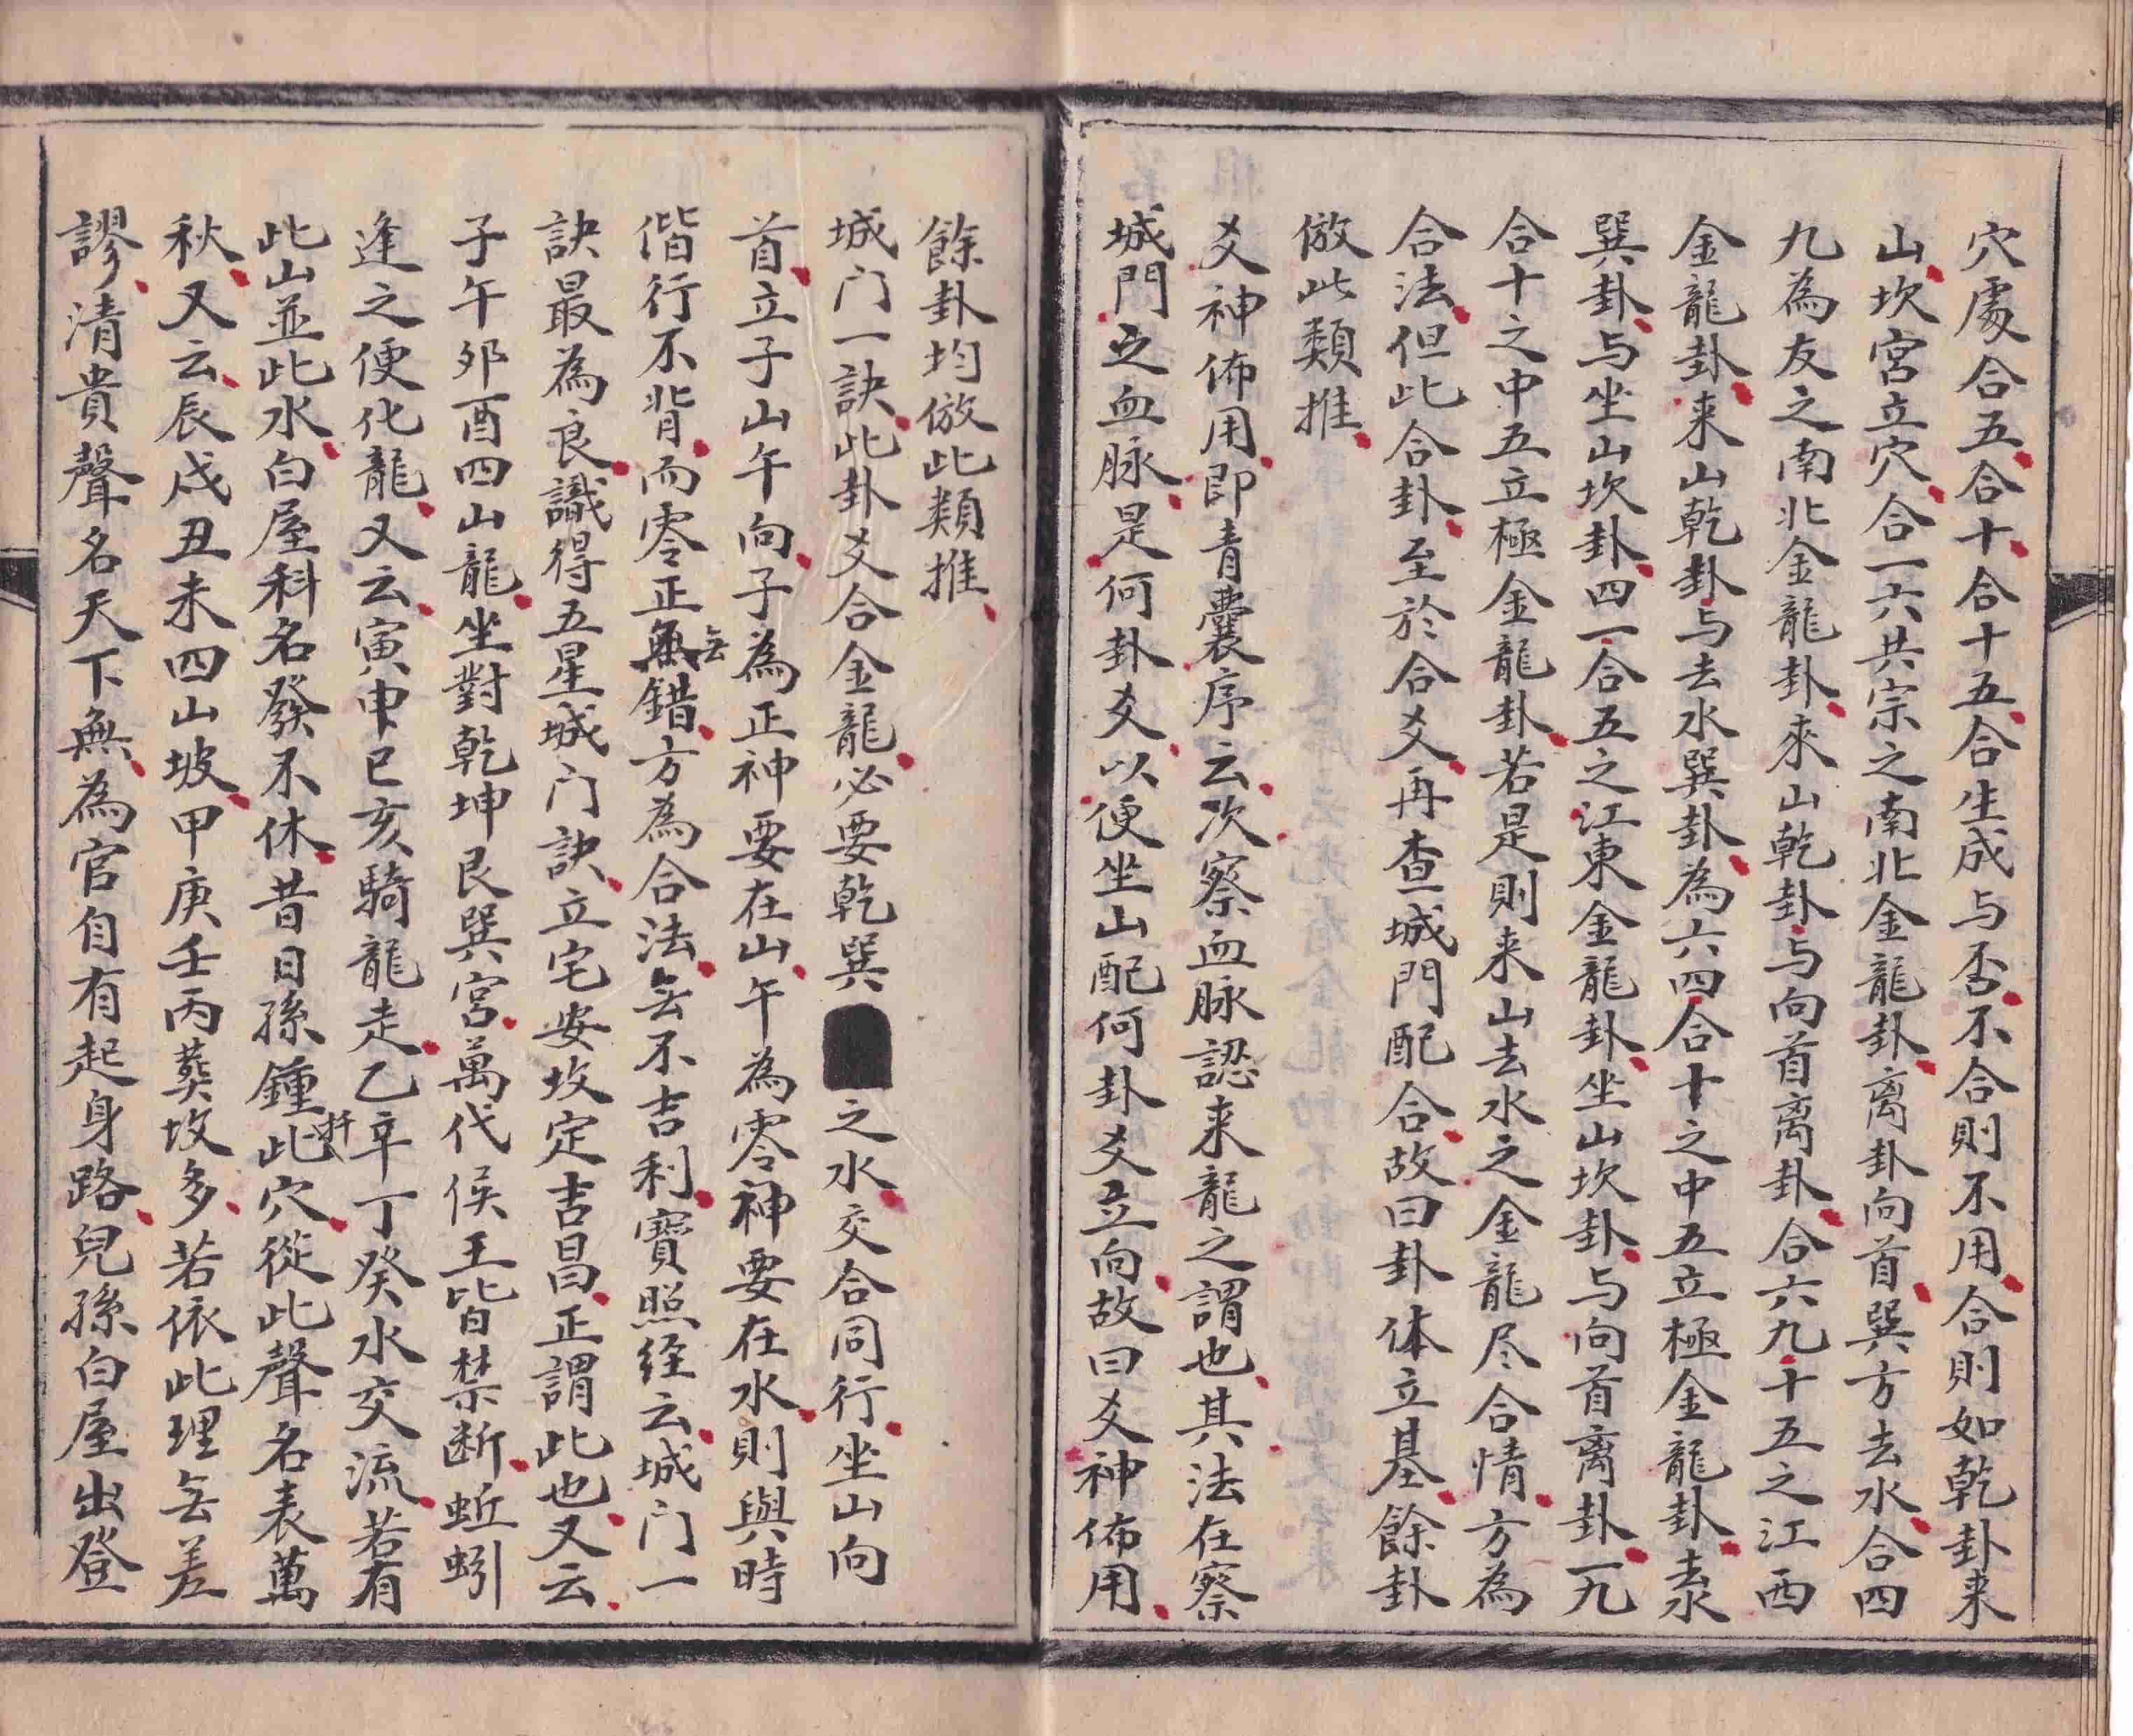 穴處合五合十合十五合生成与否不合則不用合則如乾卦来
山坎宮立穴合一六共宗之南北金龍卦离卦向首巽方去水合四
九為友之南北金龍卦來山乾卦与向首离卦合六九十五之江西
金龍卦来山乾卦与去水巽卦為六四合十之中五立極金龍卦去水
巽卦与坐山坎卦四一合五之江東金龍卦坐山坎卦与向首离卦一九
合十之中五立極金龍卦若是則来山去水之金龍尽合情方為
合法但此合卦至於合爻再查城門配合故曰卦体立基餘卦
倣此類推
爻神佈用即青囊序云次察血脉認来龍之謂也其法在察
城門之血脉是何卦爻以便坐山配何卦爻立向故曰爻神佈用
餘卦均倣此類推
城门一訣此卦爻合金龍必要乾巽之水交合同行坐山向
首立子山午向子為正神要在山午為零神要在水則與時
偕行不背而零正無错方為合法무不吉利寶照经云城门一
訣最為良識得五星城门訣立宅安坟定吉昌正謂此也又云
子午夘酉四山龍坐對乾坤艮巽宮萬代侯王皆禁断蚯蚓
逢之便化龍又云寅申巳亥騎龍走乙辛丁癸水交流若有
此山並此水白屋科名發不休昔日孫鍾扦此穴從此聲名表萬
秋又云辰戌丑未四山坡甲庚壬丙葬坟多若依此理无差
謬清貴聲名天下無為官自有起身路兒孫白屋出登